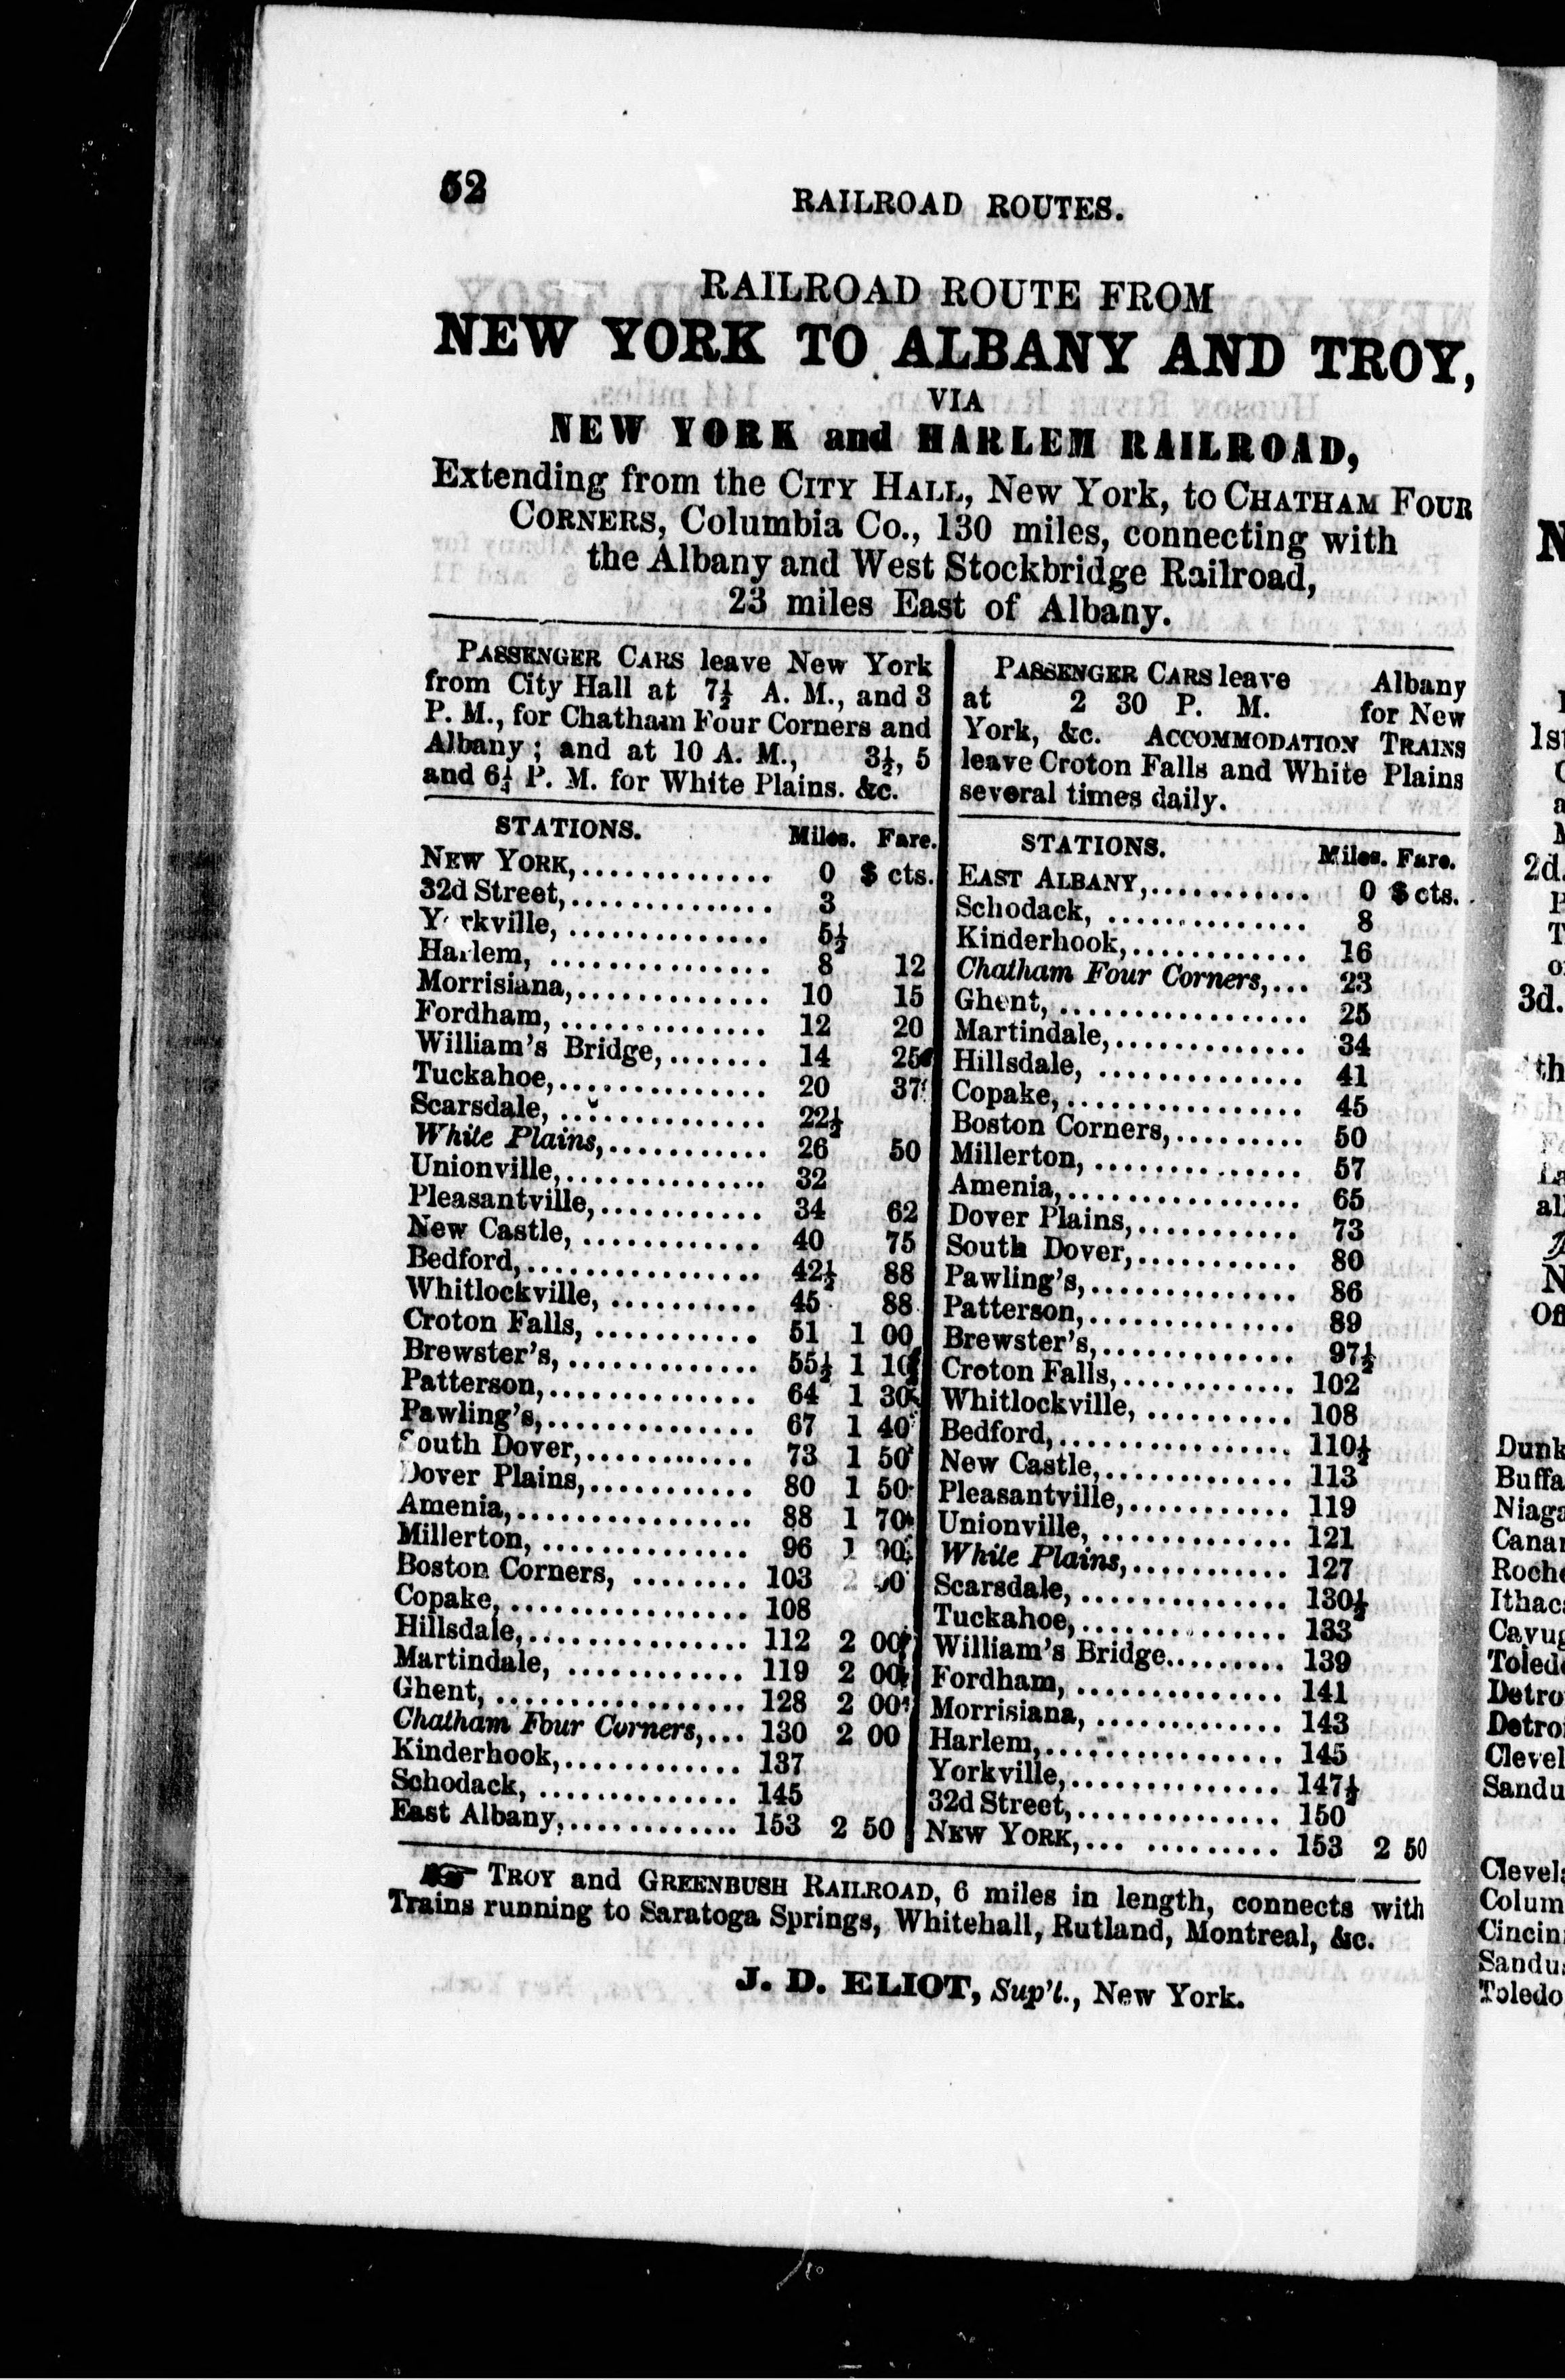 52 RAILROAD ROUTES.
RAILROAD ROUTE FROM
NEW YORK TO ALBANY AND TROY,
VIA
NEW YORK and HARLEM RAILROAD,
Extending from the CITY HALL, New York, to CHATHAM FOUR
CORNERS, Columbia Co., 130 miles, connecting with
the Albany and West Stockbridge Railroad,
23 miles East of Albany.
PASSENGER CARS leave New York
from City Hall at 7½ A. M., and 3
P. M., for Chatham Four Corners and
Albany; and at 10 A. M., 3½, 5
and 6¼ P. M. for White Plains. &c.
STATIONS. Miles. Fare.
NEW YORK,.............. 0 $ cts.
32d Street,............... 3
Yorkville, .............. 5½
Harlem, ................ 8 12
Morrisiana,............. 10 15
Fordham, ............... 12 20
William's Bridge,........ 14 25
Tuckahoe,............... 20 37
Scarsdale, .............. 22½
White Plains,........... 26 50
Unionville,............... 32
Pleasantville,............ 34 62
New Castle, ............ 40 75
Bedford,................. 42½ 88
Whitlockville, .......... 45 88
Croton Falls, ........... 51 1 00
Brewster's, ............. 55½ 1 10
Patterson,............... 64 1 30
Pawling's,............... 67 1 40
South Dover,............ 73 1 50
Dover Plains,............ 80 1 50
Amenia,................. 88 1 70
Millerton, ............... 96 1 90
Boston Corners, ........ 103
Copake,................. 108
Hillsdale,................ 112 2 00
Martindale, ............. 119 2 00
Ghent, .................. 128 2 00
Chatham Four Corners,... 130 2 00
Kinderhook,............. 137
Schodack, ............... 145
East Albany,............. 153 2 50
PASSENGER CARS leave Albany
at 2 30 P. M. for New
York, &c. ACCOMMODATION TRAINS
leave Croton Falls and White Plains
several times daily.
STATIONS. Miles. Fare.
EAST ALBANY,........... 0 $ cts.
Schodack, .............. 8
Kinderhook,............. 16
Chatham Four Corners,... 23
Ghent, .................. 25
Martindale,.............. 34
Hillsdale, ............... 41
Copake,................. 45
Boston Corners,......... 50
Millerton, ............... 57
Amenia,................. 65
Dover Plains,............ 73
South Dover,............ 80
Pawling's,............... 86
Patterson,............... 89
Brewster's,.............. 97½
Croton Falls,............ 102
Whitlockville, .......... 108
Bedford,................. 110½
New Castle,............. 113
Pleasantville,............ 119
Unionville, .............. 121
White Plains,........... 127
Scarsdale, ............... 130½
Tuckahoe,............... 133
William's Bridge......... 139
Fordham, ............... 141
Morrisiana, ............. 143
Harlem,................. 145
Yorkville,............... 147½
32d Street,............... 150
NEW YORK,... ......... 153 2 50
☞ TROY and GREENBUSH RAILROAD, 6 miles in length, connects with
Trains running to Saratoga Springs, Whitehall, Rutland, Montreal, &c.
J. D. ELIOT, Sup't., New York.
N
1st
2d.
3d.
N
Dunk
Buffa
Niaga
Canan
Roche
Ithac
Cayug
Toled
Detro
Detroi
Clevel
Sandu
Clevel
Colum
Cincin
Sandu
Toledo